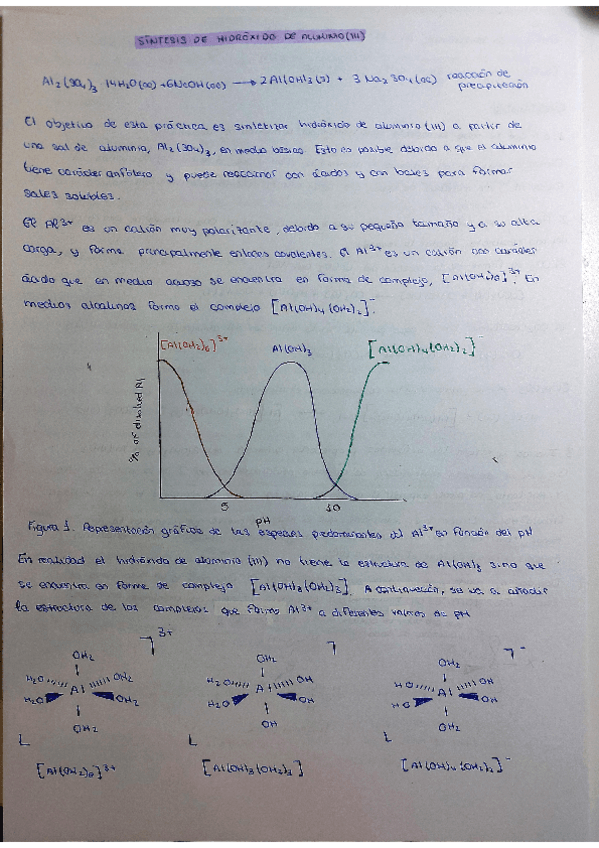 SÍNTESIS DE HIDRÓXIDO DE ALUMINIO(III)
Al₂(SO₄)₃ · 14H₂O(ac) + 6NaOH(ac) → 2Al(OH)₃(s) + 3 Na₂SO₄(ac) reacción de precipitación
El objetivo de esta práctica es sintetizar hidróxido de aluminio (III) a partir de
una sal de aluminio, Al₂(SO₄)₃, en medio básico. Esto es posible debido a que el aluminio
tiene carácter anfótero y puede reaccionar con ácidos y con bases para formar
sales solubles.
El Al³⁺ es un catión muy polarizante, debido a su pequeño tamaño y a su alta
carga, y forma principalmente enlaces covalentes. El Al³⁺ es un catión con carácter
ácido que en medio acuoso se encuentra en forma de complejo, [Al(OH₂)₆]³⁺. En
medios alcalinos forma el complejo [Al(OH)₄(OH₂)₂]⁻.
[Al(OH₂)₆]³⁺ Al(OH)₃ [Al(OH)₄(OH₂)₂]⁻
% of disolved Al
5 10
pH
Figura 1. Representación gráfica de las especies predominantes del Al³⁺ en función del pH
En realidad el hidróxido de aluminio (III) no tiene la estructura de Al(OH)₃ sino que
se encuentra en forma de complejo [Al(OH)₃(OH₂)₃]. A continuación, se va a añadir
la estructura de los complejos que forma Al³⁺ a diferentes valores de pH
3+ -
OH₂ OH₂ OH₂
H₂O OH₂ H₂O OH HO OH
Al Al Al
H₂O OH₂ H₂O OH HO OH
OH₂ OH OH₂
[Al(OH₂)₆]³⁺ [Al(OH)₃(OH₂)₃] [Al(OH)₄(OH₂)₂]⁻